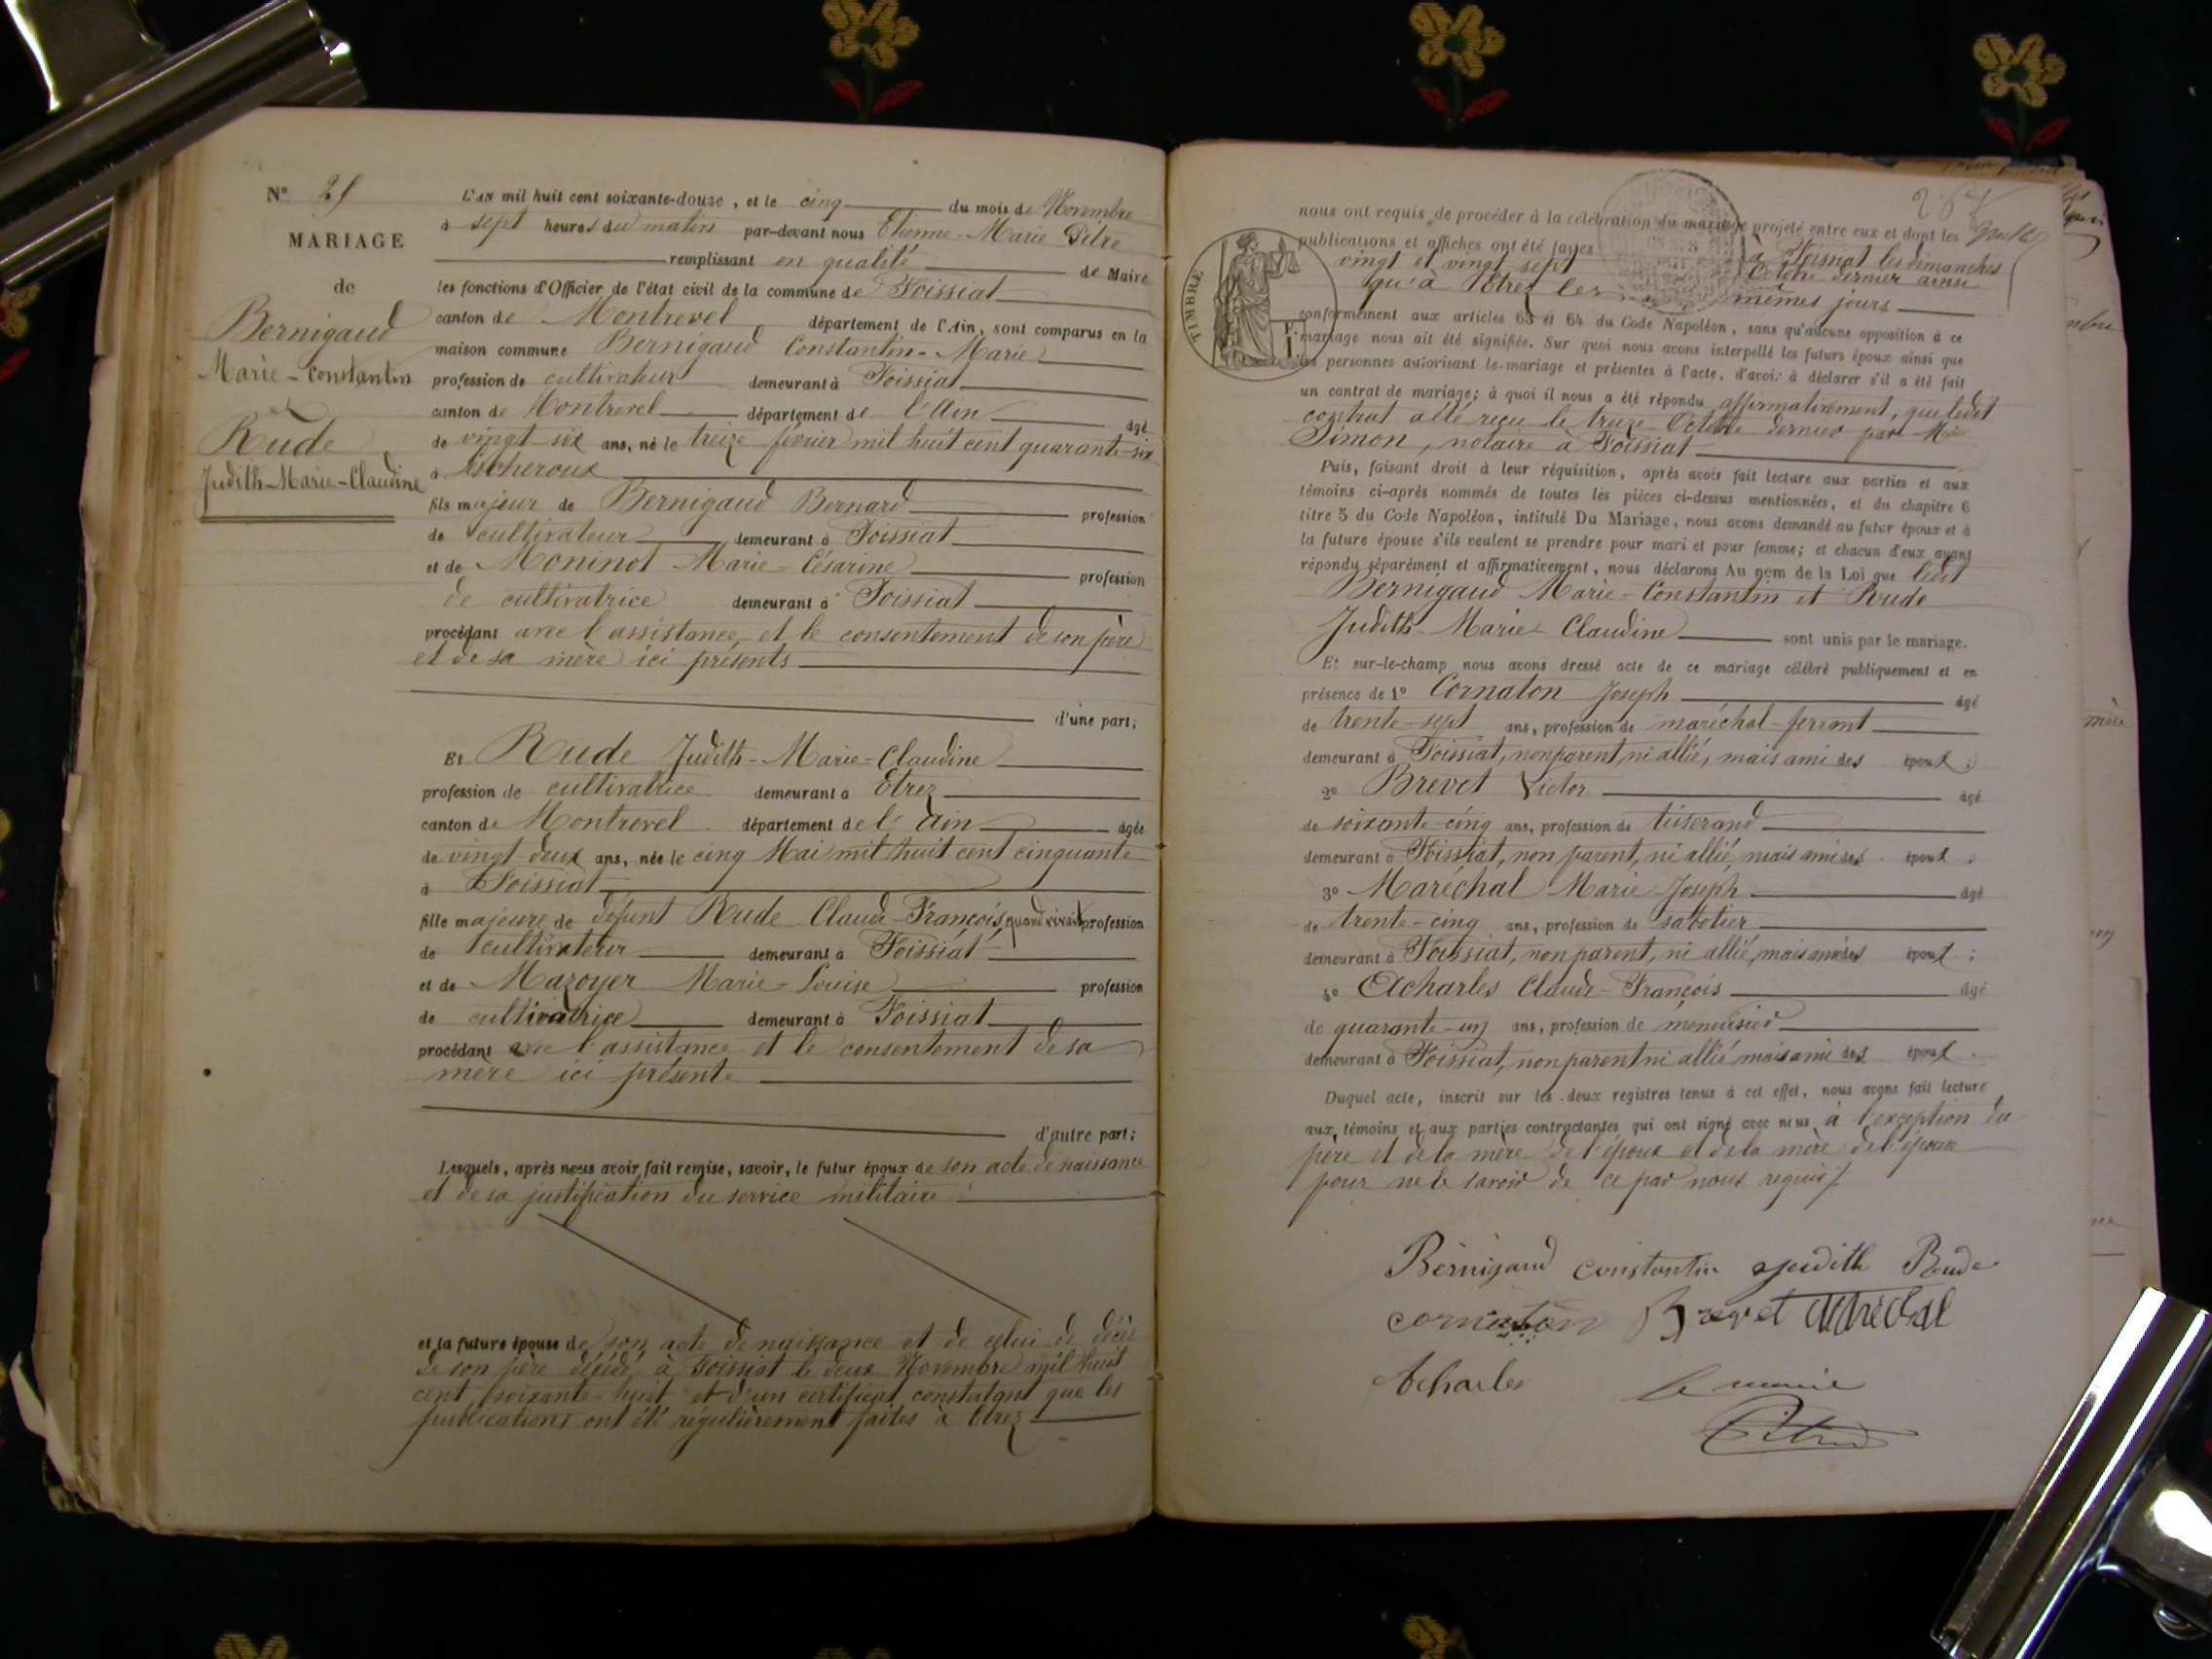 N° 21
MARIAGE
de
Bernigaud
Marie-Constantin
et
Rude
Judith-Marie-Claudine
L'AN mil huit cent soixante-douze, et le cinq du mois de Novembre
à sept heures du matin par-devant nous Etienne-Marie Pitre
remplissant en qualité de Maire
les fonctions d'Officier de l'état civil de la commune de Foissiat
canton de Montrevel département de l'Ain, sont comparus en la
maison commune Bernigaud Constantin-Marie
profession de cultivateur demeurant à Foissiat
canton de Montrevel département de l'Ain âgé
de vingt-six ans, né le treize février mil huit cent quarante-six
à Lescheroux
fils majeur de Bernigaud Bernard profession
de cultivateur demeurant à Foissiat
et de Moninot Marie-Césarine profession
de cultivatrice demeurant à Foissiat
procédant avec l'assistance et le consentement de son père
et de sa mère ici présents
d'une part;
Et Rude Judith-Marie-Claudine
profession de cultivatrice demeurant à Etrez
canton de Montrevel département de l'Ain âgée
de vingt-deux ans, née le cinq Mai mil huit cent cinquante
à Foissiat
fille majeure de défunt Rude Claude-François, quand vivait profession
de cultivateur demeurant à Foissiat
et de Mazoyer Marie-Louise profession
de cultivatrice demeurant à Foissiat
procédant avec l'assistance et le consentement de sa
mère ici présente
d'autre part;
Lesquels, après nous avoir fait remise, savoir, le futur époux de son acte de naissance
et de sa justification du service militaire
et la future épouse de son acte de naissance et de celui de décès
de son père décédé à Foissiat le deux Novembre mil huit
cent soixante-huit et d'un certificat constatant que les
publications ont été régulièrement faites à Etrez
nous ont requis de procéder à la célébration du mariage projeté entre eux et dont les
publications et affiches ont été faites à Foissiat les dimanches
vingt et vingt sept Octobre dernier ainsi
qu'à Etrez les mêmes jours
TIMBRE
conformément aux articles 63 et 64 du Code Napoléon, sans qu'aucune opposition à ce
mariage nous ait été signifiée. Sur quoi nous avons interpellé les futurs époux ainsi que
les personnes autorisant le mariage et présentes à l'acte, d'avoir à déclarer s'il a été fait
un contrat de mariage; à quoi il nous a été répondu affirmativement, que ledit
contrat a été reçu le treize Octobre dernier par Me
Simon, notaire à Foissiat
Puis, faisant droit à leur réquisition, après avoir fait lecture aux parties et aux
témoins ci-après nommés de toutes les pièces ci-dessus mentionnées, et du chapitre 6
titre 5 du Code Napoléon, intitulé Du Mariage, nous avons demandé au futur époux et à
la future épouse s'ils veulent se prendre pour mari et pour femme; et chacun d'eux ayant
répondu séparément et affirmativement, nous déclarons Au nom de la Loi que ledit
Bernigaud Marie-Constantin et Rude
Judith-Marie-Claudine sont unis par le mariage.
Et sur-le-champ nous avons dressé acte de ce mariage célébré publiquement et en
présence de 1° Cornaton Joseph âgé
de trente-sept ans, profession de maréchal-ferrant
demeurant à Foissiat, non parent, ni allié, mais ami des époux;
2° Brevet Victor âgé
de soixante-cinq ans, profession de tisserand
demeurant à Foissiat, non parent, ni allié mais ami des époux.
3° Maréchal Marie Joseph âgé
de trente-cinq ans, profession de sabotier
demeurant à Foissiat, non parent, ni allié, mais ami des époux;
4° Acharles Claude-François âgé
de quarante-un ans, profession de menuisier
demeurant à Foissiat, non parent ni allié mais ami des époux.
Duquel acte, inscrit sur les deux registres tenus à cet effet, nous avons fait lecture
aux témoins et aux parties contractantes qui ont signé avec nous à l'exception du
père et de la mère de l'époux et de la mère de l'épouse
pour ne le savoir de ce par nous requis
Bérnigaud constantin Judith Rude
cornaton Brevet Maréchal
Acharles le maire
Pitre